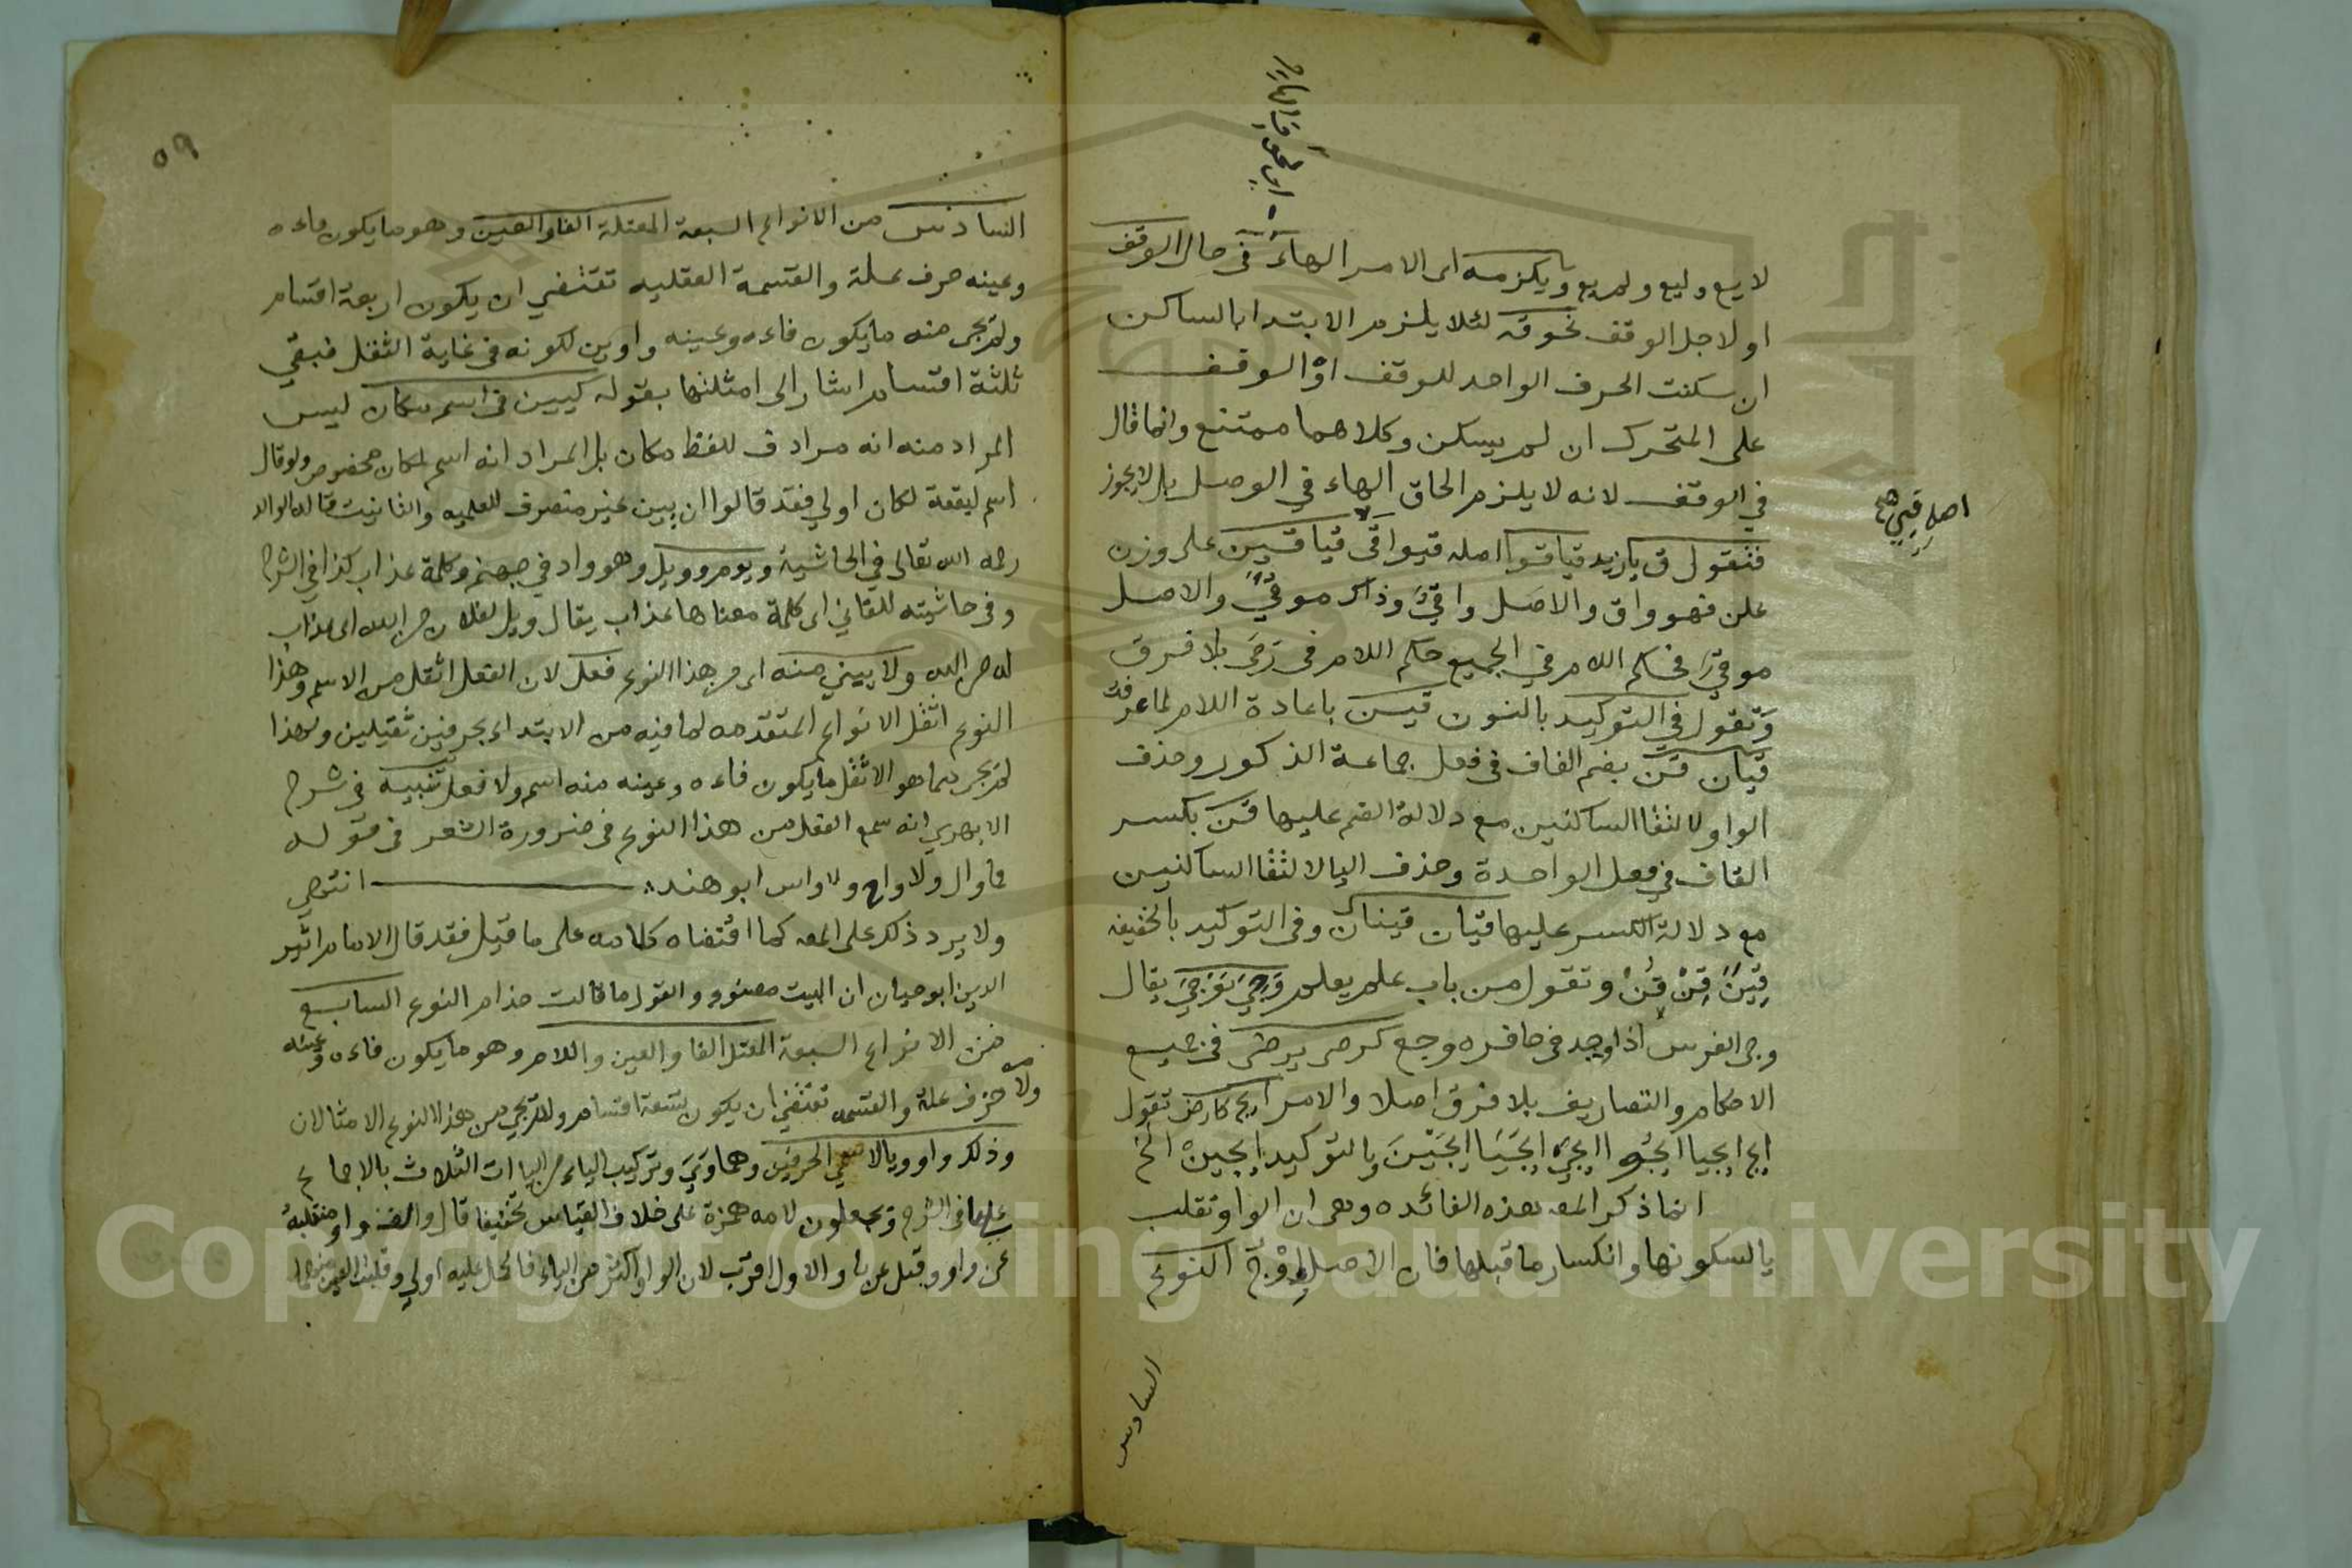 لا يع وليع ولم يع ويلزمه اى الامر الهاء فى حال الوقف
او لاجل الوقف نحو قه لئلا يلزم الابتدا بالساكن
ان سكنت الحرف الواحد للوقف او الوقف
على المتحرك ان لم يسكن وكلاهما ممتنع وانما قال
في الوقف لانه لا يلزم الحاق الهاء في الوصل بل لا يجوز
فتقول ق يا زيد قيا قوا اصله قيوا قى قيا قين على وزن
علن فهو واق والاصل واقي وذاك موقي والاصل
موقي فحكم اللام في الجميع حكم اللام فى رمى بلا فرق
وتقول في التوكيد بالنون قين باعادة اللام لما عرفت
قيان قن بضم القاف فى فعل جماعة الذكور وحذف
الواو لالتقا الساكنين مع دلالة الضم عليها قن بكسر
القاف في فعل الواحدة وحذف اليا لالتقا الساكنين
مع دلالة الكسر عليها قيان قينان وفى التوكيد بالخفيفه
قين قن قن وتقول من باب علم يعلم وجي يوجي يقال
وجى الفرس اذا وجد فى حافره وجع كرضى يرضى فى جميع
الاحكام والتصاريف بلا فرق اصلا والامر ايج كارض تقول
ايج ايجيا ايجوا ايجي ايجيا ايجين وبالتوكيد ايجين الخ
انما ذكر المص هذه الفائده وهى ان الواو تقلب
يا لسكونها وانكسار ما قبلها فان الاصل اوج النوع
السادس
اصل قيي
٥٩
السادس من الانواع السبعة المعتلة الفا والعين وهو ما يكون فاءه
وعينه حرف علة والقسمة العقليه تقتضي ان يكون اربعة اقسام
ولم يجر منه ما يكون فاءه وعينه واوين لكونه فى غاية الثقل فبقي
ثلثة اقسام اشار الى امثلتها بقوله كيين فى اسم مكان ليس
المراد منه انه مرادف للفظ مكان بل المراد انه اسم لمكان مخصوص ولو قال
اسم لبقعة لكان اولي فقد قالوا ان يين غير منصرف للعلميه والتانيث قاله الوالد
رحمه الله تعالى في الحاشية ويوم وويل وهو واد في جهنم وكلمة عذاب كذا في الشرح
وفى حاشيته للقاني اى كلمة معناها عذاب يقال ويل لفلان من الله اى عذاب
له من الله ولا يبني منه اى من هذا النوع فعل لان الفعل اثقل من الاسم وهذا
النوع اثقل الانواع المتقدمه لما فيه من الابتداء بحرفين ثقيلين ولهذا
لم يجر مما هو الاثقل ما يكون فاءه وعينه منه اسم ولا فعل تنبيه فى شرح
الابهري انه سمع الفعل من هذا النوع فى ضرورة الشعر فى قوله
فما وال ولا واح ولا واس ابو هند انتهى
ولا يرد ذلك على المص كما اقتضاه كلامه على ما قيل فقد قال الامام اثير
الدين ابو حيان ان البيت مصنوع والقول ما قالت حذام النوع السابع
من الانواع السبعة المعتل الفا والعين واللام وهو ما يكون فاءه وعينه
ولامه حرف علة والقسمه تقتضي ان يكون تسعة اقسام ولم يجي من هذا النوع الا مثالان
وذلك واو ويا لاسمي الحرفين وهما وَيَيَ وتركيب الياء من الياات الثلاث بالاجماع
عليها فى الشرح ويجعلون لامه همزة على خلاف القياس تخفيفا قال والف واو منقلبة
عن واو وقيل عن ياء والاول اقرب لان الواو اكثر من الياء فالحمل عليه اولي وقلبت العين منهما
Copyright © King Saud University